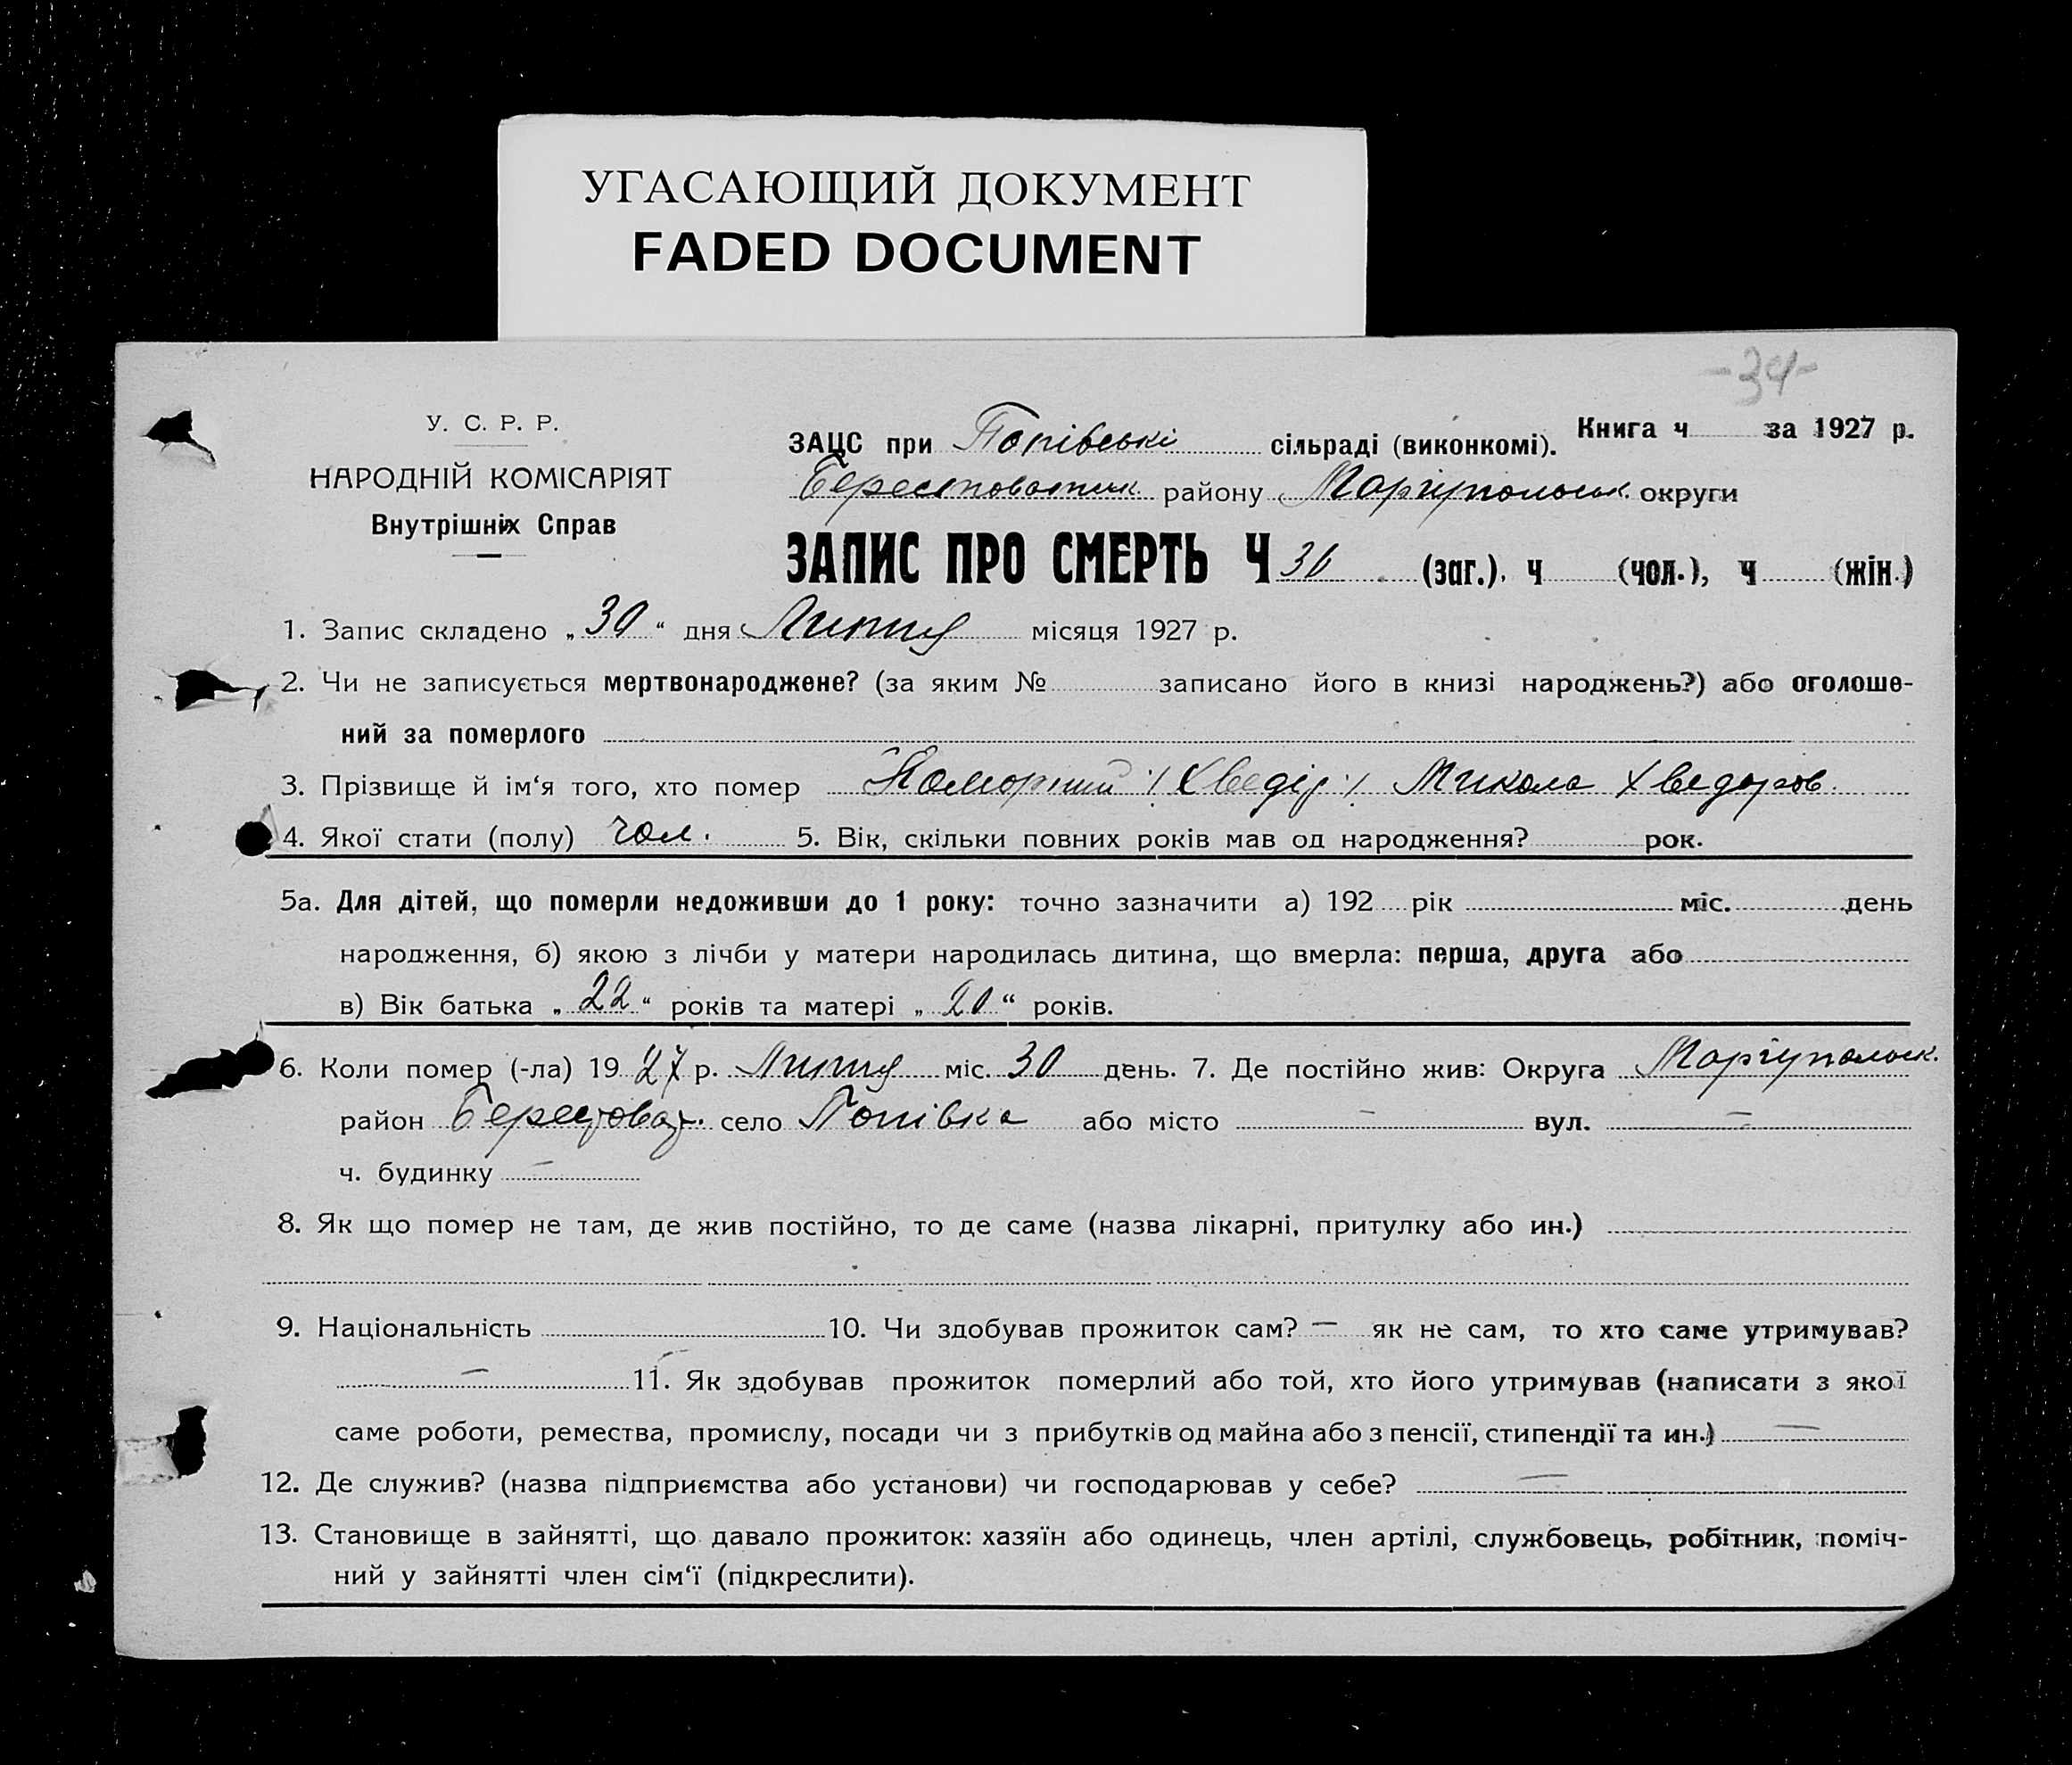 УГАСАЮЩИЙ ДОКУМЕНТ
FADED DOCUMENT
-34-
У. С. Р. Р.
НАРОДНІЙ КОМІСАРІЯТ
Внутрішніх Справ
Книга ч за 1927 р.
ЗАЦС при Попівські сільраді (виконкомі).
Берестоватськ району Маріупольськ. округи
ЗАПИС ПРО СМЕРТЬ Ч 36 (заг.). ч (чол.), ч (жін.)
1. Запис складено „30“ дня Липня місяця 1927 р.
2. Чи не записується мертвонароджене? (за яким № записано його в книзі народжень?) або оголоше-
ний за померлого
3. Прізвище й ім‘я того, хто помер /Хведір/ Микола Хведоров.
4. Якої стати (полу) чол. 5. Вік, скільки повних років мав од народження? рок.
5а. Для дітей, що померли недоживши до 1 року: точно зазначити а) 192 рік міс. день
народження, б) якою з лічби у матери народилась дитина, що вмерла: перша, друга або
в) Вік батька „22“ років та матері „20“ років.
6. Коли помер (-ла) 1927 р. Липня міс. 30 день. 7. Де постійно жив: Округа Маріупольськ.
район Берестоват. село Попівка або місто — вул. —
ч. будинку —
8. Як що помер не там, де жив постійно, то де саме (назва лікарні, притулку або ин.)
9. Національність 10. Чи здобував прожиток сам? — як не сам, то хто саме утримував?
— 11. Як здобував прожиток померлий або той, хто його утримував (написати з якої
саме роботи, ремества, промислу, посади чи з прибутків од майна або з пенсії, стипендії та ин.) —
12. Де служив? (назва підприємства або установи) чи господарював у себе? —
13. Становище в зайнятті, що давало прожиток: хазяїн або одинець, член артілі, службовець, робітник, поміч-
ний у зайнятті член сім‘ї (підкреслити).